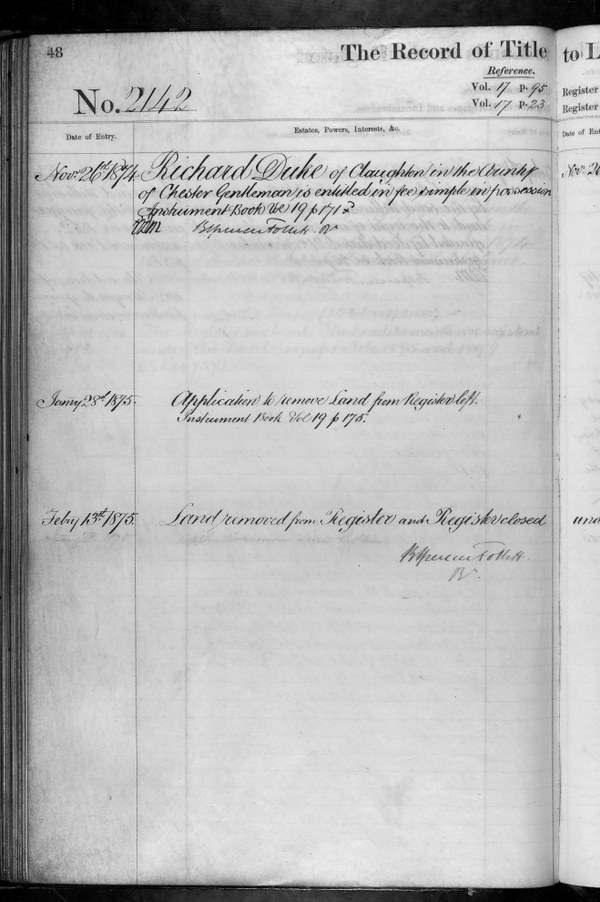 48
The Record of Title to L
Reference.
No. 2142
Vol. 17 p. 95
Vol. 17 p. 23
Register
Register
Date of Entry.
Estates, Powers, Interests, &c.
Date of Ent
Novr. 26th 1874
Richard Duke of Claughton in the County
of Chester Gentleman is entitled in fee simple in possession
Instrument Book Vol 19 p 171
Janry 28th 1875.
Application to remove Land from Register left.
Instrument Book Vol 19 p 175.
Feby 13th 1875.
Land removed from Register and Register closed